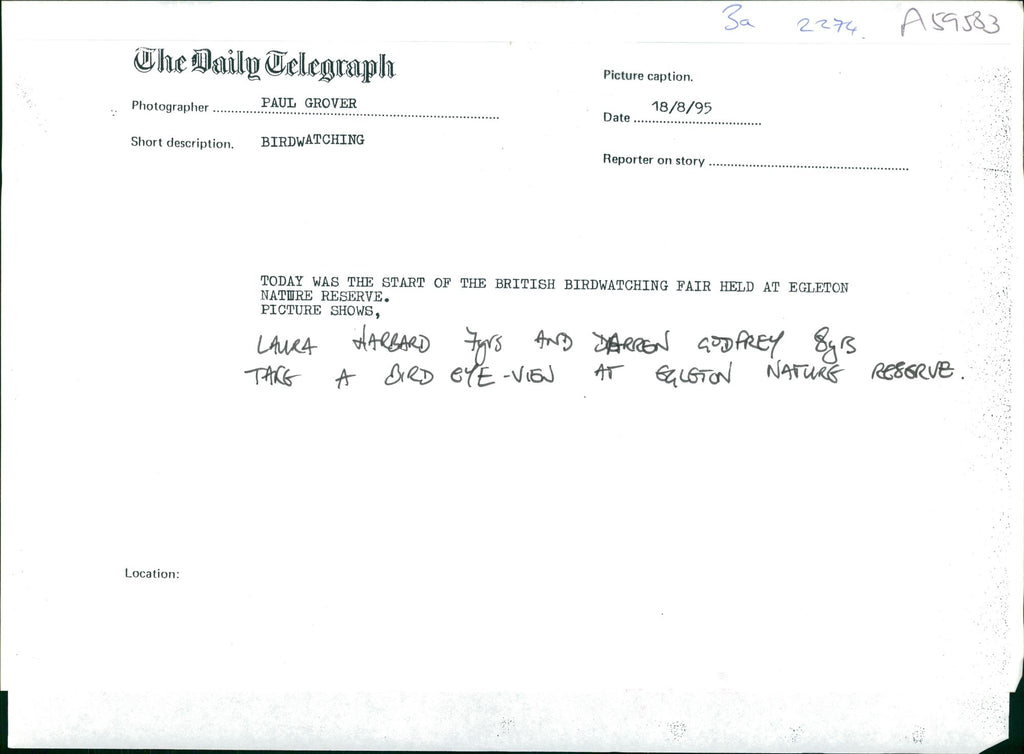 3a 2274. A59583
The Daily Telegraph
Picture caption.
Photographer PAUL GROVER
18/8/95
Date
Short description. BIRDWATCHING
Reporter on story
TODAY WAS THE START OF THE BRITISH BIRDWATCHING FAIR HELD AT EGLETON
NATURE RESERVE.
PICTURE SHOWS,
LAURA HARBARD 7yrs AND DARREN GODFREY 8yrs
TAKE A BIRD EYE-VIEW AT EGLETON NATURE RESERVE.
Location: